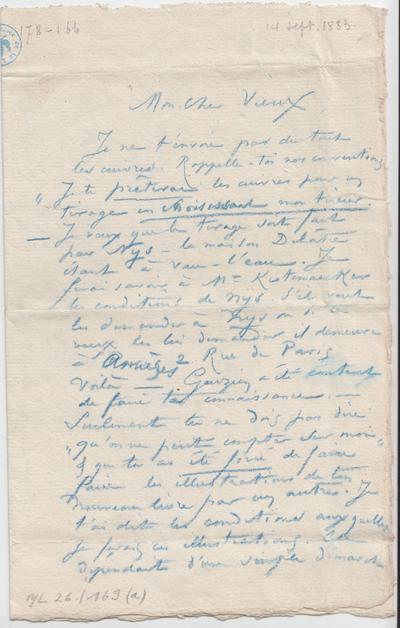 178-166
14 sept. 1883
Mon Cher Vieux
Je ne t'envoie pas du tout
les cuivres. Rappelle-toi nos conventions
"Je te prêterai les cuivres pour un
tirage en choisissant mon tireur.
— Je veux que le tirage soit fait
par Nys — la maison Delâtre
étant à vau-l'eau. Je
ferai savoir à Mr Kistemaeckers
les conditions de Nys. S'il veut
les demander à Nys ou si tu
veux les lui demander il demeure
à 2 Rue de Paris
Voilà — Gouzien a été content
de faire ta connaissance. —
Seulement tu ne dois pas dire
"qu'on ne peut compter sur moi"
& que tu as été forcé de faire
faire les illustrations de ton
nouveau livre par un autre. Je
t'ai dit les conditions auxquelles
je ferais ces illustrations. Elles
dépendaient d'une simple démarche
ML 26/169 (a)